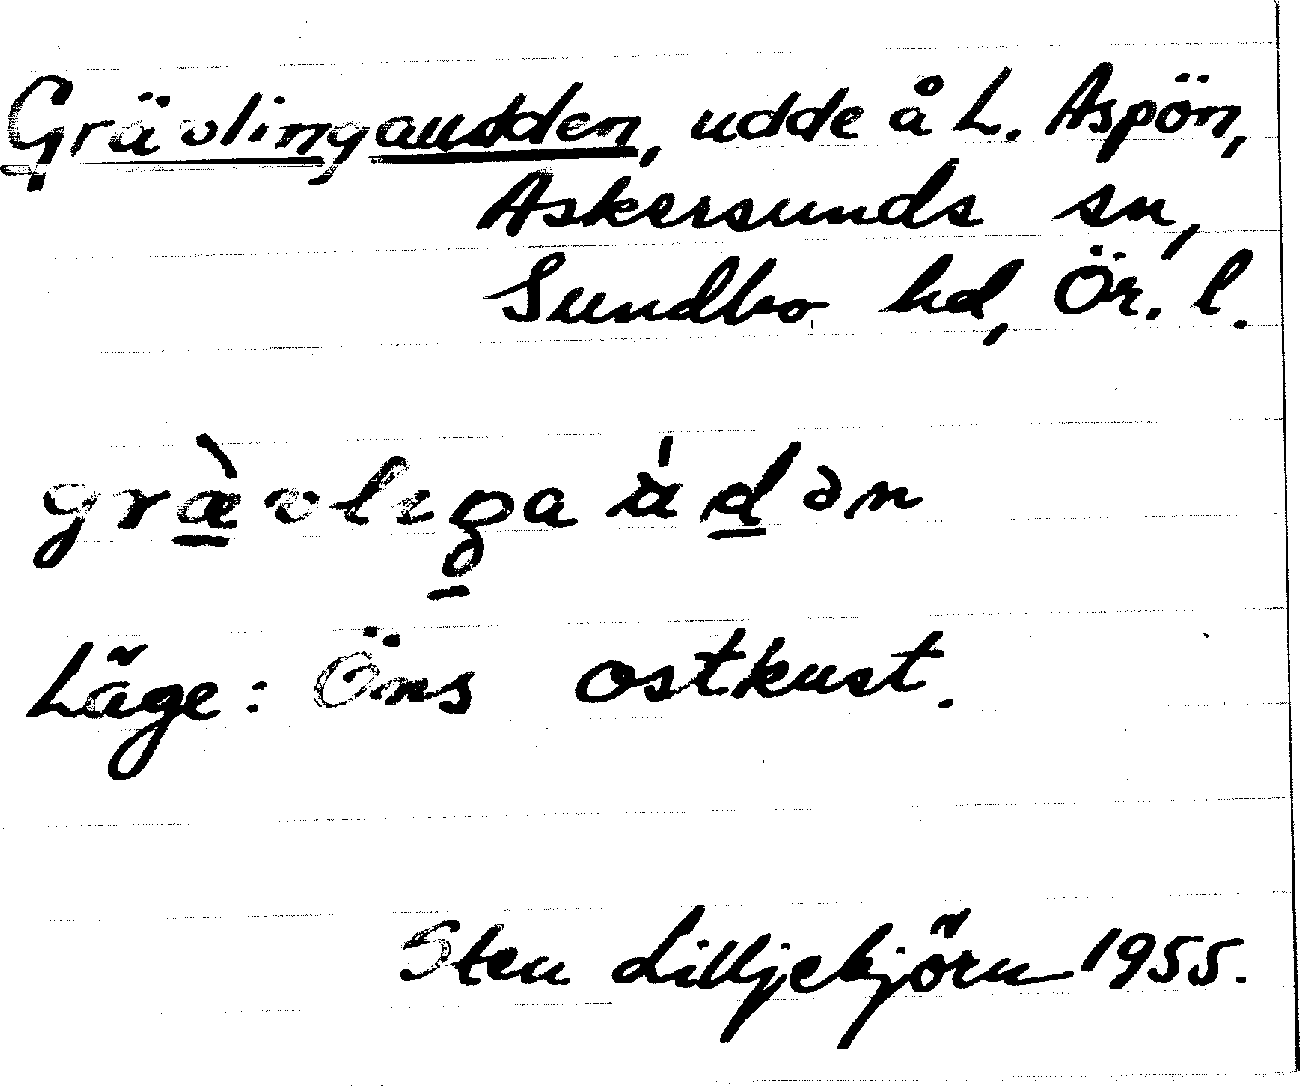 Grävlingaudden, udde å L. Aspön,
Askersunds sn,
Sundbo hd, Ör. l.
Läge: Öns ostkust.
Sten Lilljebjörn 1955.